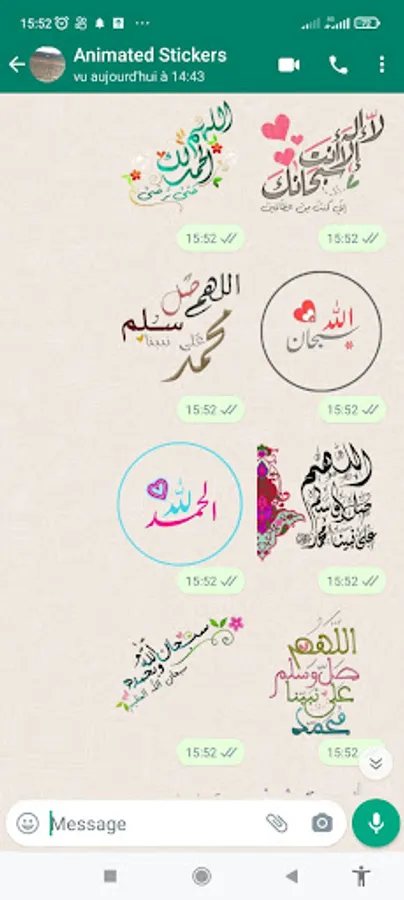 15:52
72
Animated Stickers
vu aujourd'hui à 14:43
اللهم لك الحمد حتى ترضى
15:52
لا إله إلا أنت سبحانك
إني كنت من الظالمين
15:52
اللهم صل
وسلم على نبينا
محمد
15:52
سبحان الله
15:52
الحمد لله
15:52
اللهم
صل وسلم
على نبينا محمد
15:52
سبحان الله
وبحمده
سبحان الله العظيم
15:52
اللهم
صل وسلم
على نبينا
محمد
15:52
Message